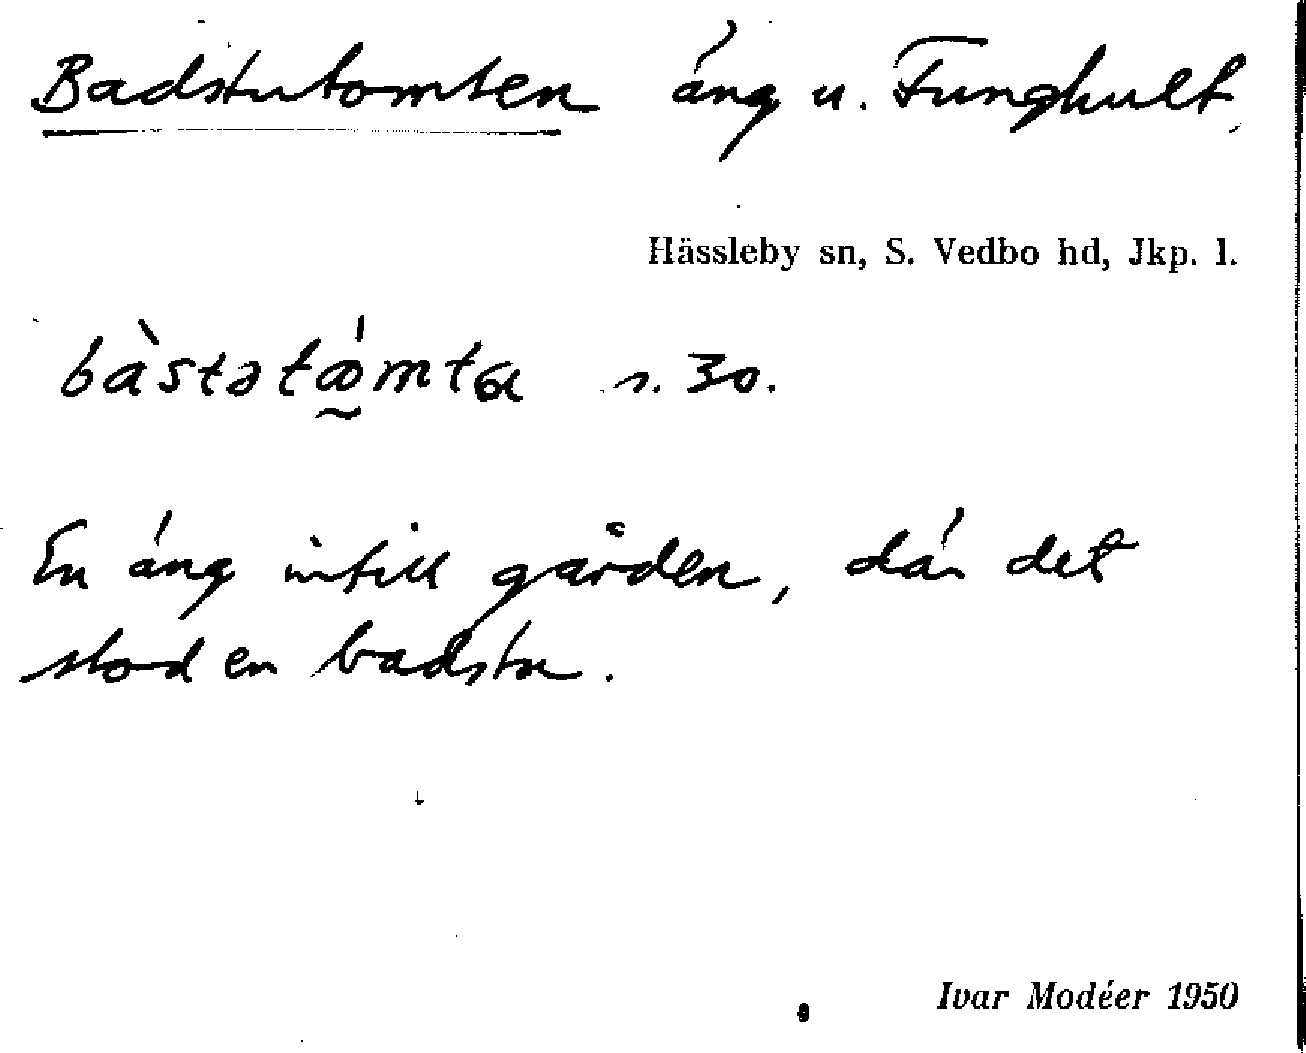 Badstutomten äng u. Funghult,
Hässleby sn, S. Vedbo hd, Jkp. l.
bàstətǿmta s. 30.
En äng intill gården, där det
stod en badstu.
Ivar Modéer 1950